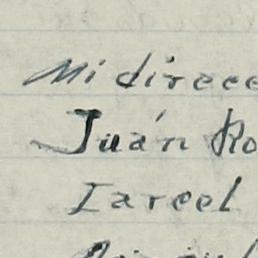 Mi direcc
Juán Ro
Iareel